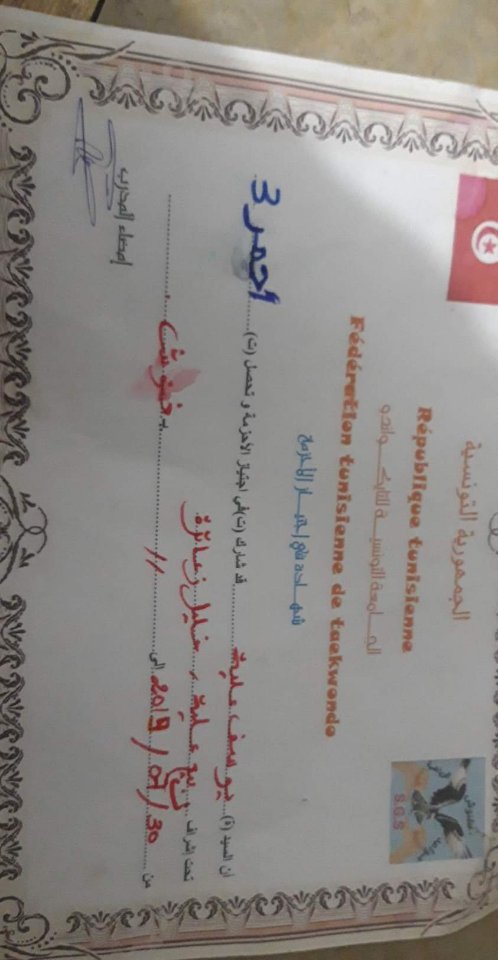 الجمهورية التونسية
République tunisienne
الجامعة التونسية للتايكواندو
Fédération tunisienne de taekwondo
شهادة في إجتياز الأحزمة
S.G.S
أن السيد (ة) يوسف علية قد شارك (ت) في اجتياز الأحزمة و تحصل (ت) أحمر 3
تحت إشراف علية خليل زعائرة
من 30/04/2019 إلى // بـ
إمضاء المدرب